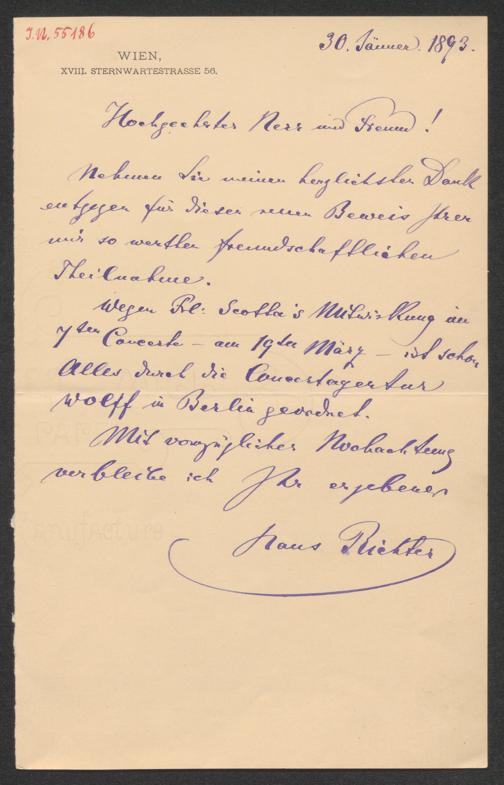 I.N. 55186
30. Jänner. 1893.
WIEN,
XVIII. STERNWARTESTRASSE 56.
Hochgeehrter Herr und Freund!
Nehmen Sie meinen herzlichsten Dank
entgegen für diesen neuen Beweis Ihrer
mir so werthen freundschaftlichen
Theilnahme.
Wegen Frl: Scotta's Mitwirkung im
7ten Concerte – am 19ten März – ist schon
Alles durch die Concertagentur
Wolff in Berlin geordnet.
Mit vorzüglicher Hochachtung
verbleibe ich Ihr ergebener
Hans Richter